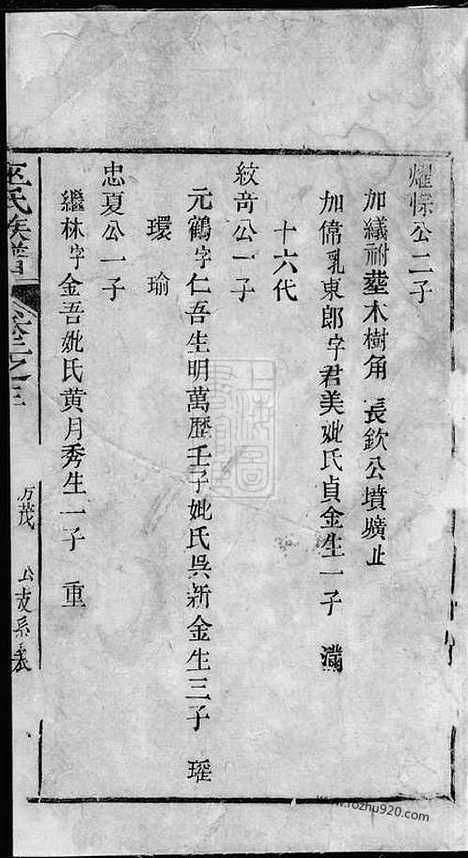 燿悰公二子
加繊祔塟木樹角　長欽公墳壙止
加儁乳東郎字君美妣氏貞金生一子　瀻
十六代
紋竒公一子
元鶴字仁吾生明萬歷壬子妣氏吳新金生三子　璀
環　瑜
忠夏公一子
繼林字金吾妣氏黄月秀生一子　重
巫氏族譜　卷之三　万茂　公支系表
www.fozhu920.com